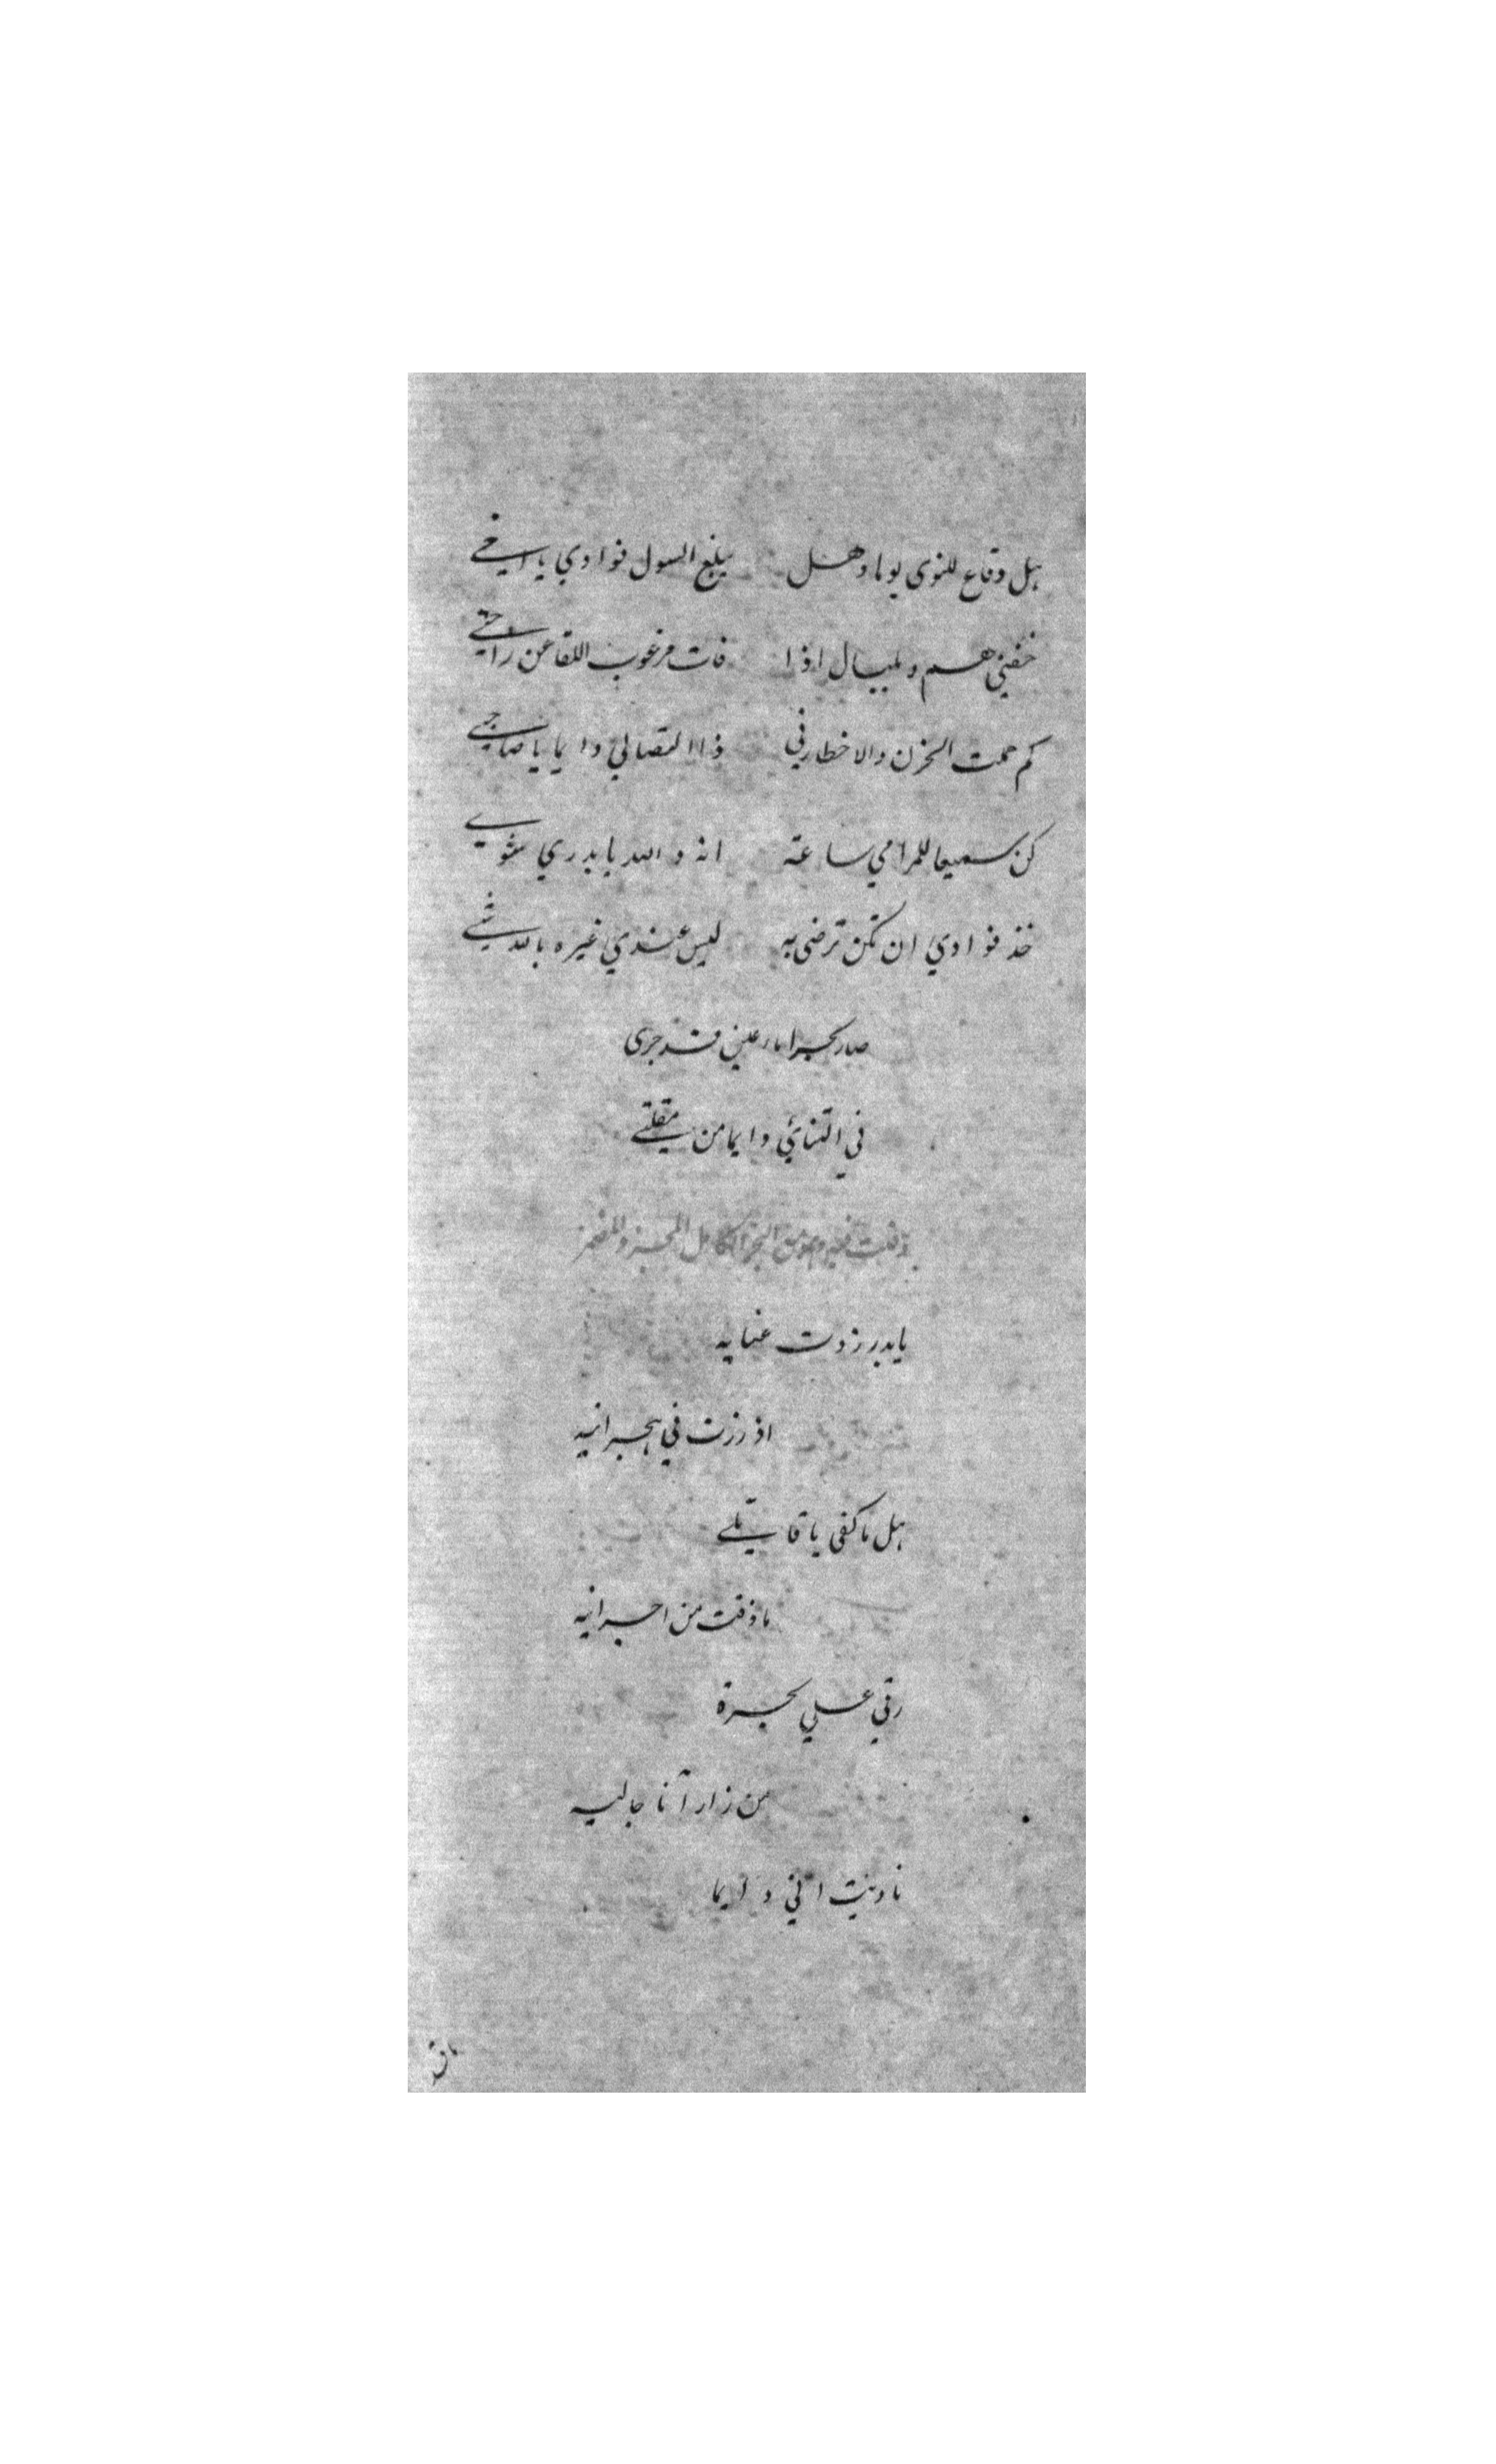 هل وقاع للنوى يوما وهل يبلغ السول فوادي يا اخي
خفني هم و بلبال اذا فات مرغوب اللقا عن راحتي
كم حملت الحزن والاخطار في ذا التصالي دايما يا صاحبي
كن سميعا للمرامي ساعة انه والله يا بدري شوي
خذ فوادي ان تكن ترضى به ليس عندي غيره بالله شي
صار بحرا ماء عيني قد جرى
في التنائي دايما من مقلتي
وقلت فيه وهو من البحر الكامل المجزو المضمر
يا بدر زدت عنايه
اذ زرت في هجرانيه
هل ما كفى يا قاتلي
ما ذقت من احزانيه
رقي علي بحسرة
من زار آنا جاليه
ناديت اني دايما